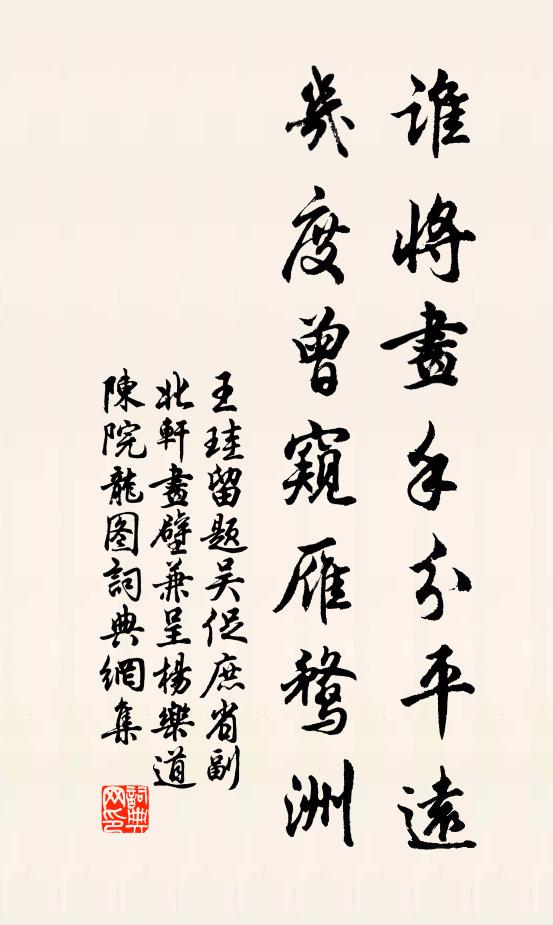 誰將畫手分平遠
幾度曾窺雁鶩洲
王珪留題吴促庶省副
北軒畫壁兼呈楊樂道
陳院龍图詞典網集
詞典网印